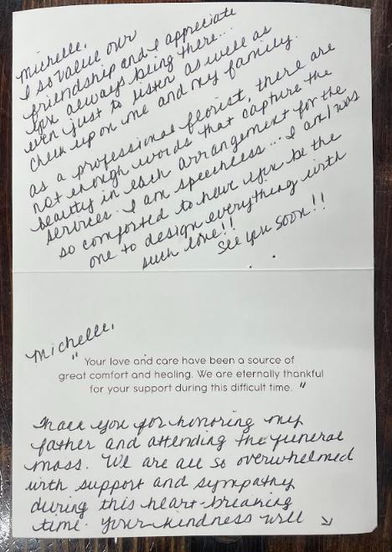 Michelle,
I so value our
friendship and I appreciate
you always being there...
even just to listen as well as
check up on me and my family.
as a professional florist, there are
not enough words that capture the
beauty in each arrangement for the
services. I am speechless... I am/was
so comforted to have you be the
one to design everything with
such love!!
See you soon!!
Michelle,
"Your love and care have been a source of
great comfort and healing. We are eternally thankful
for your support during this difficult time."
Thank you for honoring my
father and attending the funeral
mass. We are all so overwhelmed
with support and sympathy
during this heart-breaking
time. Your kindness will ↘